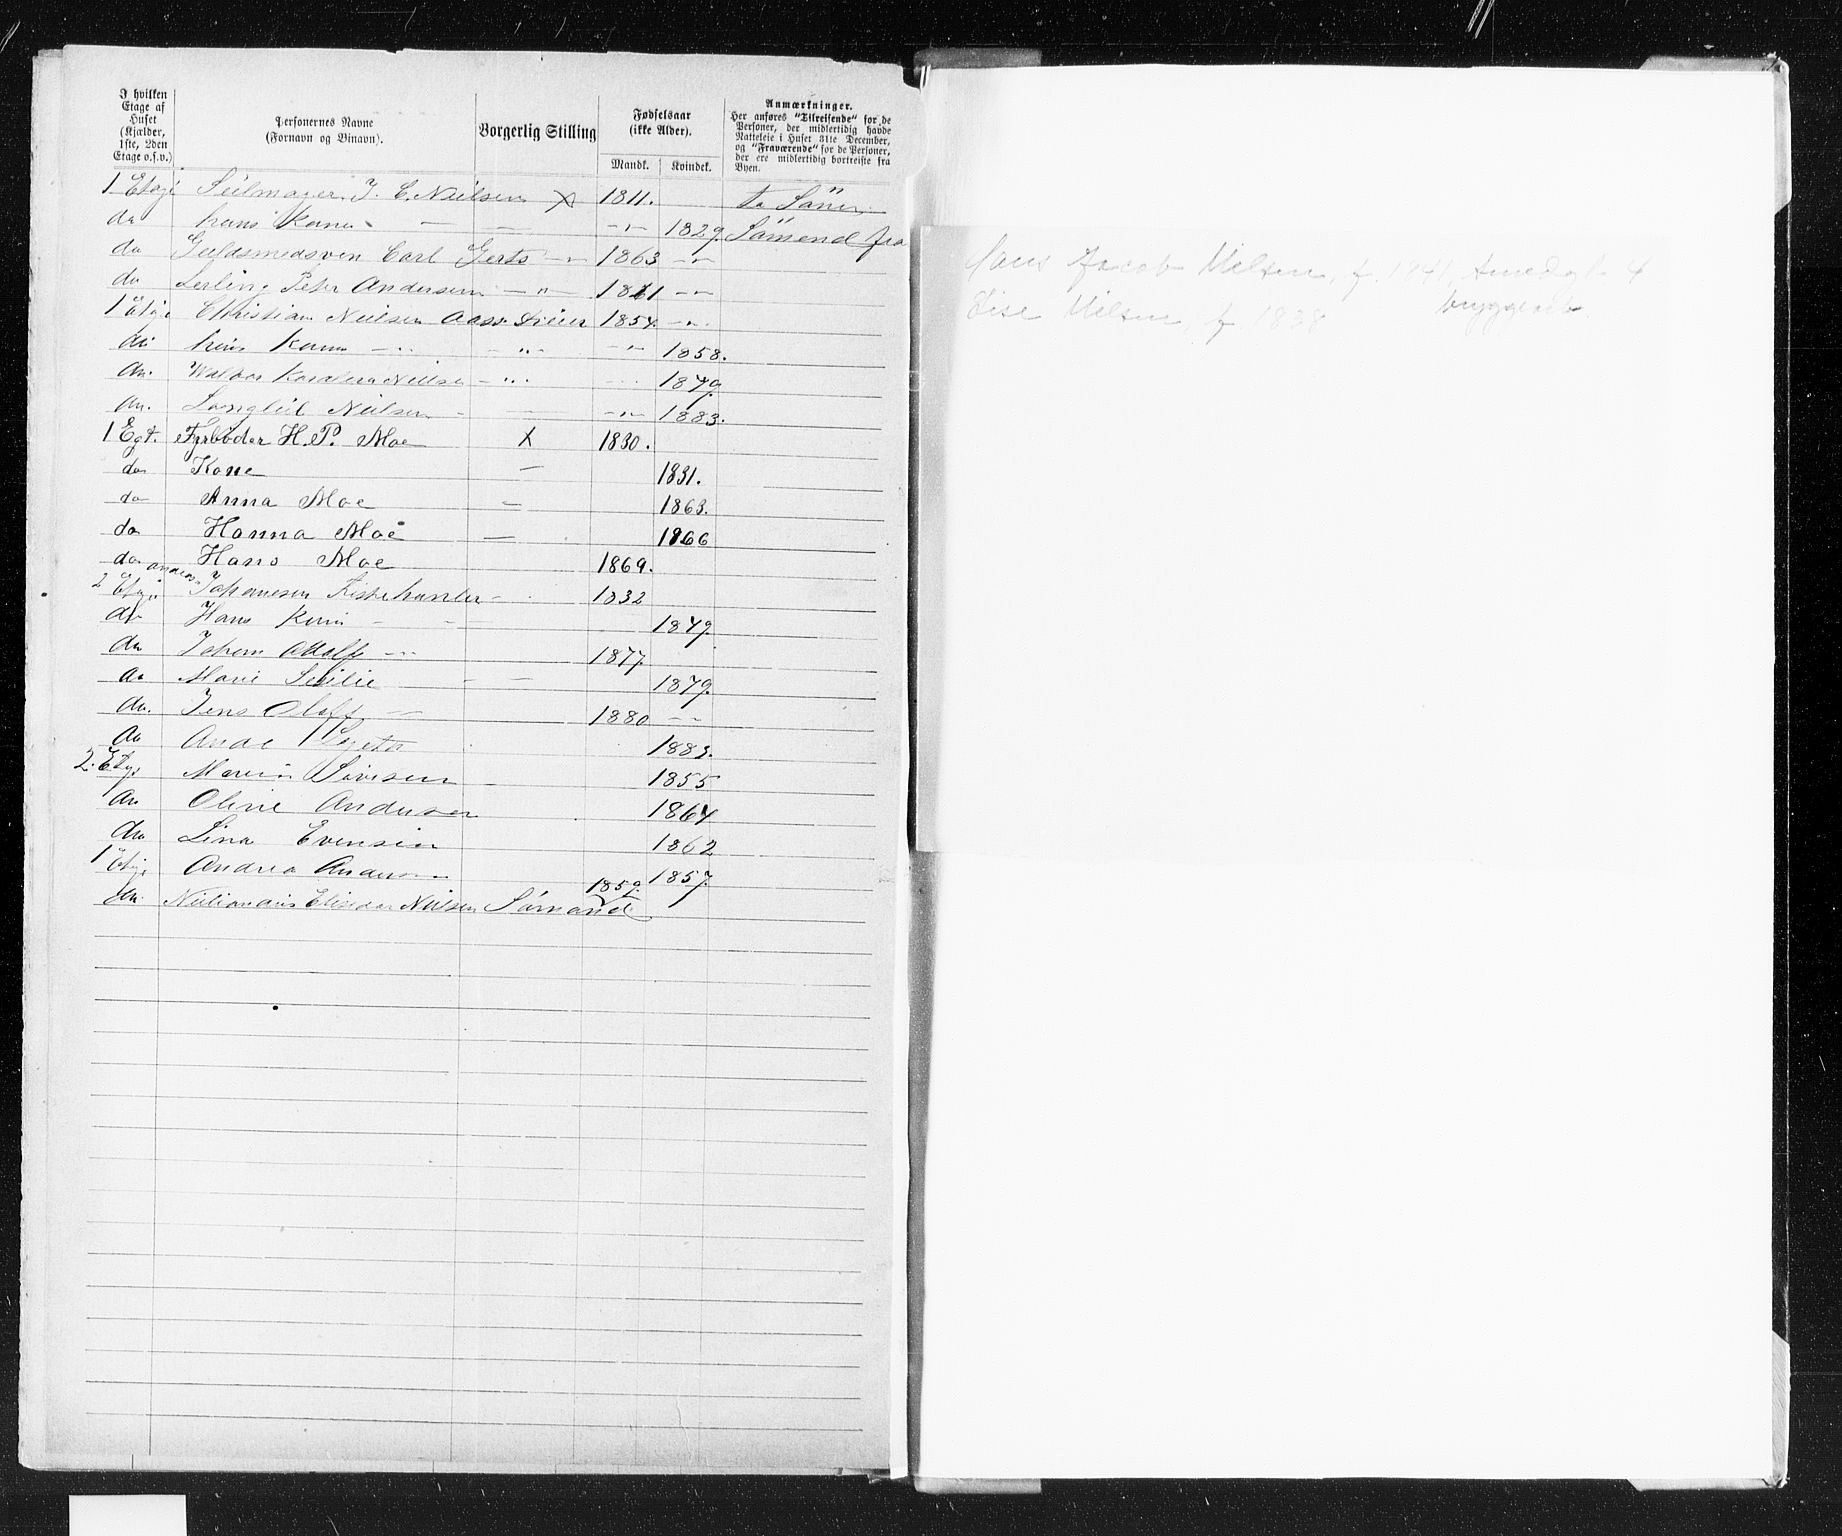 I hvilken Etage af Huset (Kjælder, 1ste, 2den Etage o.s.v.) Personernes Navne (Fornavn og Binavn). Borgerlig Stilling Fødselsaar (ikke Alder). Mandk. Kvindek. Anmærkninger. Her anføres "Tilreisende" for de Personer, der midlertidig havde Natteleie i Huset 31te December, og "Fraværende" for de Personer, der ere midlertidig bortreiste fra Byen.
1 Etage Seilmager J. C. Nielsen X 1811. to Sönn
do hans Kone 1829. Sömend fra
do Guldsmedsven Carl Gerts 1863
do Lerling Peter Andersen 1861
1 Etage Christian Nielsen 1854.
do hans Kone 1858.
do. Nielsen 1879
do. Nielsen 1883.
1 Egt. Fyrböder H. P. Moe X 1830.
do Kone 1831.
do Anna Moe 1863.
do Hanna Moe 1866
do Hans Moe 1869.
2 Etage Johannesen 1832
do Hans Kone 1849.
do Johan Adolf 1877.
do Marie Sesilie 1879.
do. Jens Olaf 1880
do 1883.
2. Etg. 1855
do Oline Andersen 1864
do Lina Evensen 1862
1 Etg. Andrea Andersen 1857.
do. Nielsen Sömand 1859.
Hans Jacob Nilsen, f. 1841, Smedgt. 4
bryggearb.
Elise Nilsen, f 1838